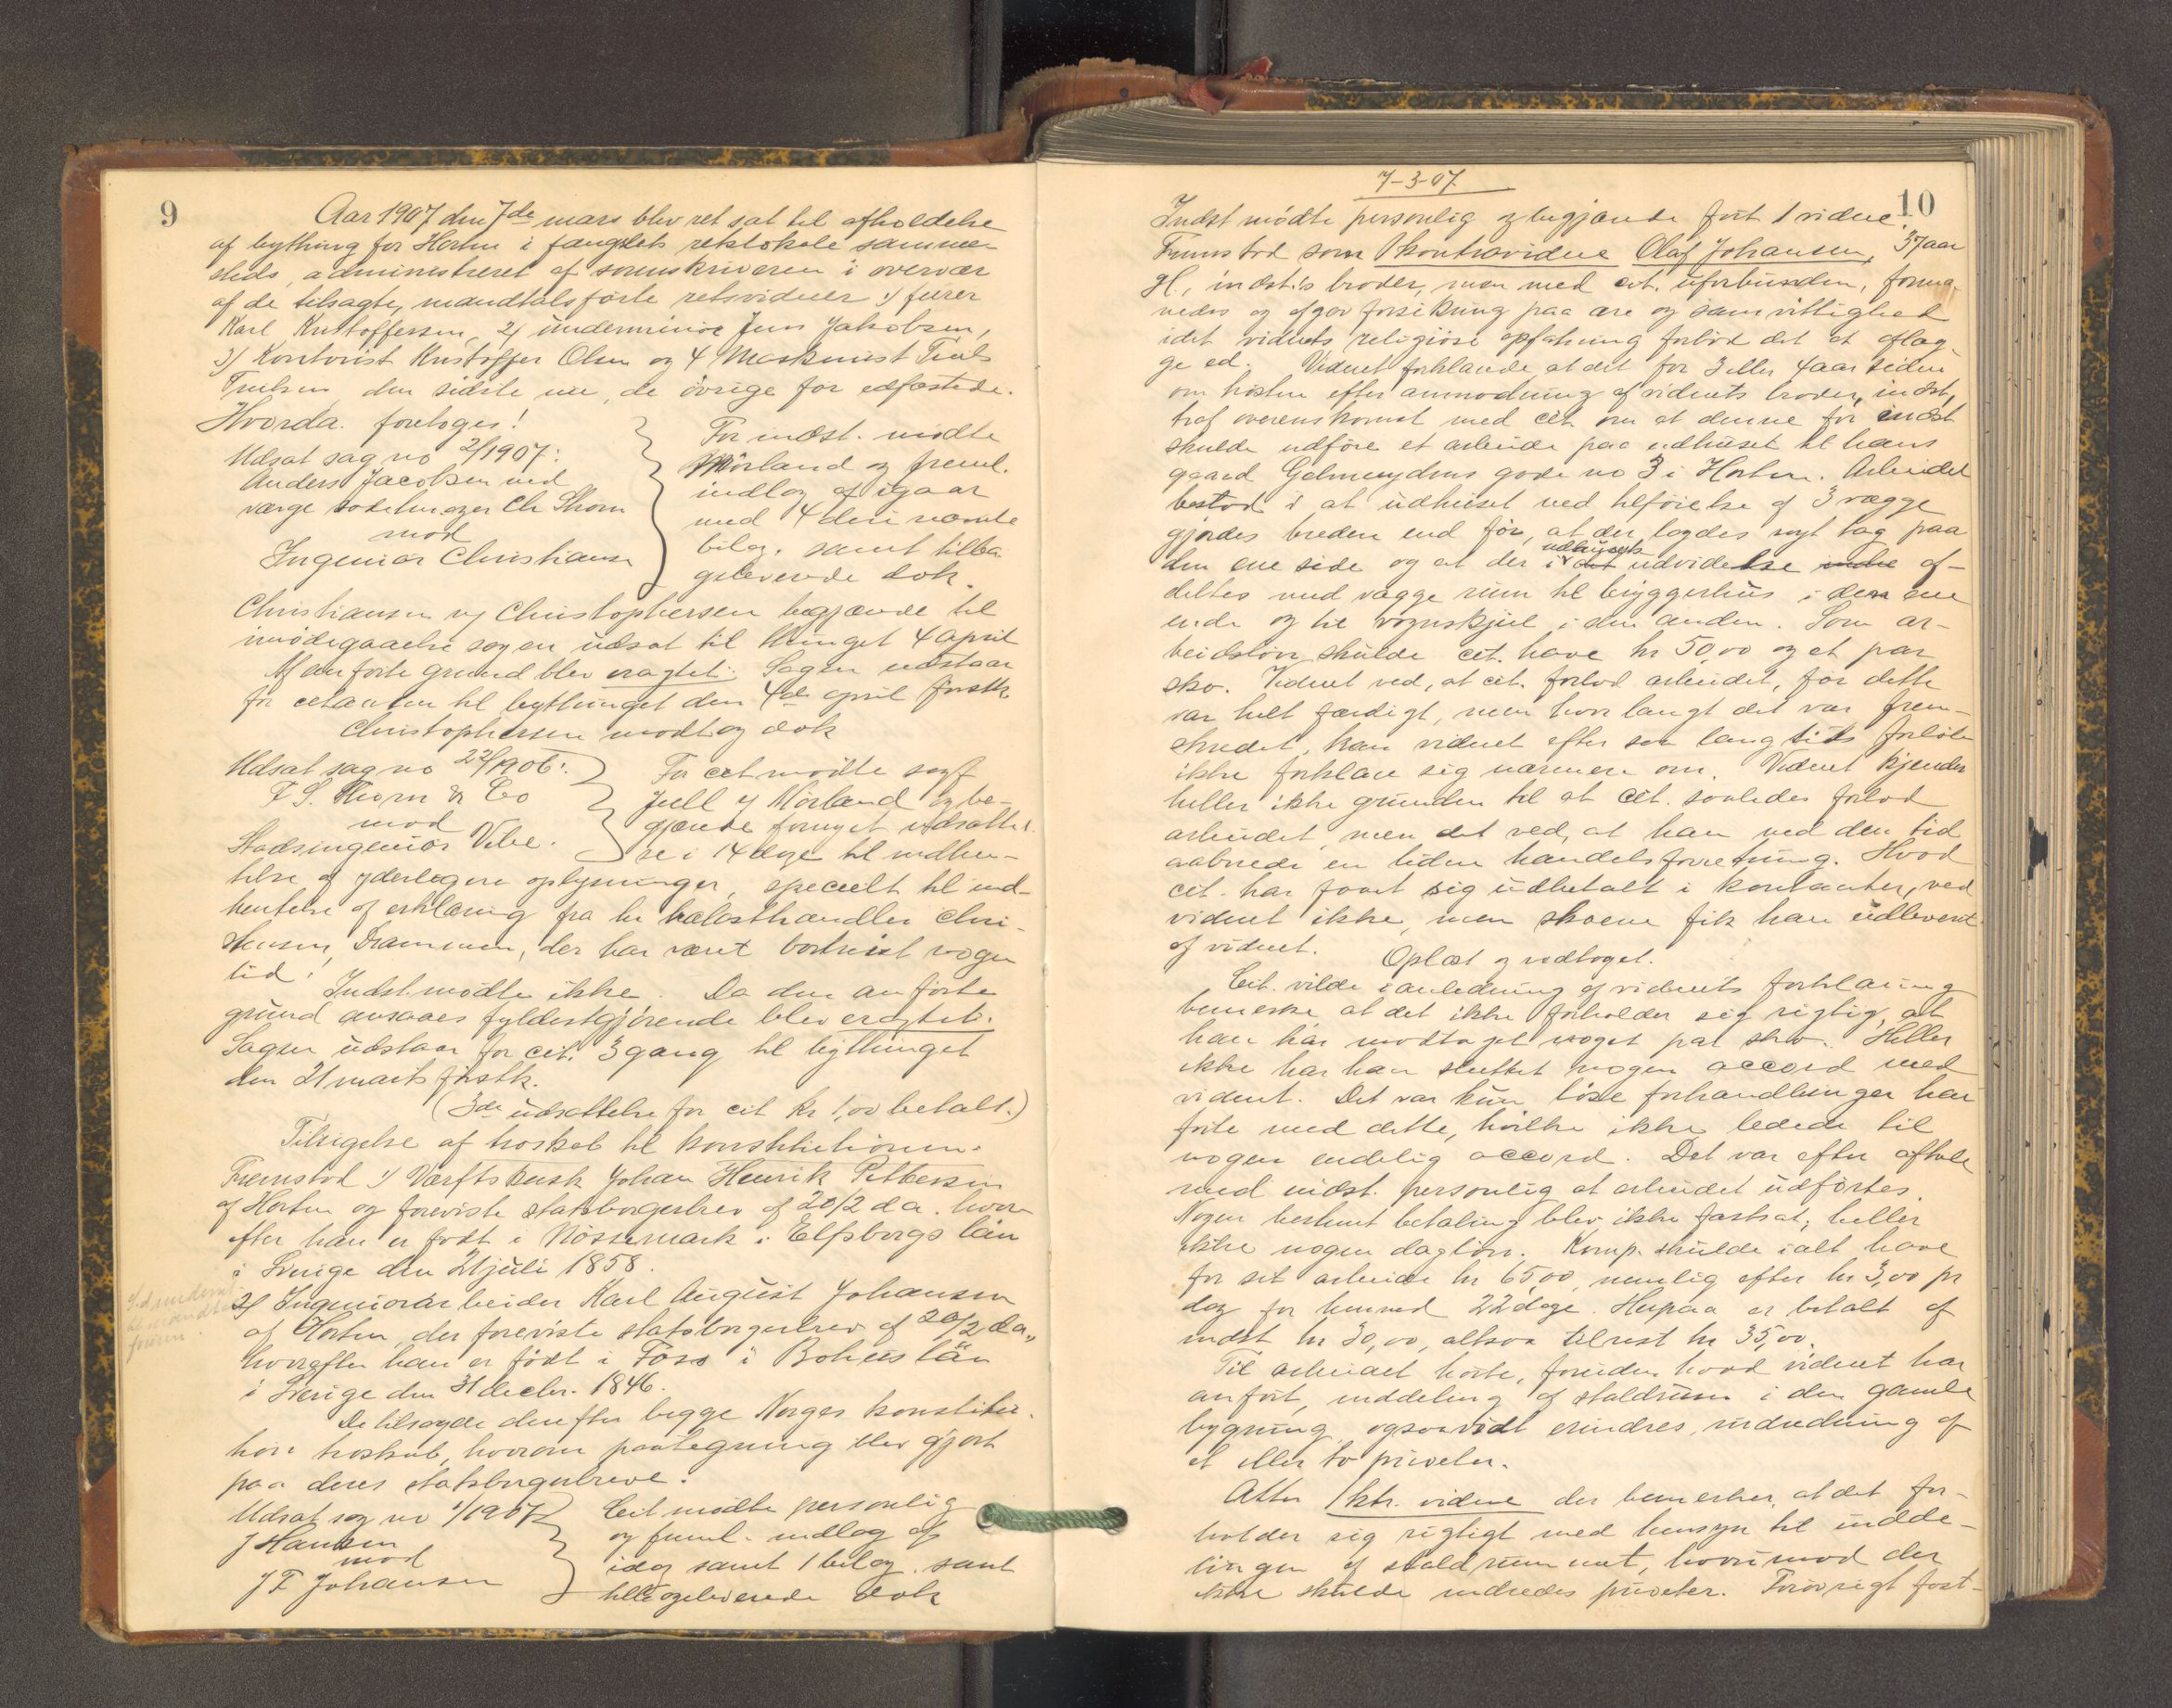 9
Aar 1907 den 7de mars blev ret sat til afholdelse
af bything for Horten i fængslets retslokale sammen-
steds, administreret af sorenskriveren i overvær
af de tilsagte, mandtalsførte retsvidner 1/ fürer
Karl Kristoffersen, 2/ ünderminör Jens Jakobsen,
3/ Kontorist Kristoffer Olsen og 4 Maskinist Truls
Trulsen, den sidste nu, de övrige før edfæstede.
Hvorda foretoges!
Udsat sag no 2/1907:
Anders Jacobsen ved
værge sadelmager Chr Thorn
mod
Ingeniör Christiansen
For indst. mødte
Mörland og freml.
indlæg af igaar
med 4 deri nævnte
bilag, samt tilba-
geleverede dok.
Christiansen v/ Christophersen begjærede til
imødegaaelse sagen udsat til thinget 4 april
Af anførte grund blev eragtet: Sagen udstaar
for citanten til bythinget den 4de april førstk
Christophersen modtog dok
Udsat sag no 22/1906:
F. S. Thorn & Co
mod
Stadsingeniör Vibe.
For cit mødte sagf
Juell v/ Mörland og be-
gjærede fornyet udsættel-
se i 14 dage til indhen-
telse af yderligere oplysninger, specielt til ind-
hentelse af erklæring fra hr ballasthandler Chri-
stensen, Drammen, der har været bortreist nogen
tid. Indst. mødte ikke. Da den anførte
grund ansaaes fyldestgjørende blev eragtet:
Sagen udstaar for cit. 3 gang til bythinget
den 21 marts førstk.
(3de udsættelse for cit Kr 1,00 betalt.)
Tilsigelse af troskab til konstitutionen.
Fremstod 1/ Værftskusk Johan Henrik Pettersen
af Horten og foreviste statsborgerbrev af 20/2 d.a. hvor-
efter han er født i Nössemark i Elfsborgs län
i Sverige den 21 juli 1858.
2/ Ingeniorarbeider Karl August Johansen
af Horten, der foreviste statsborgerbrev af 20/2 d.a.,
hvorefter han er født i Foss i Bohus län
i Sverige den 31 decbr. 1846.
De tilsagde derefter begge Norges konstitu-
tion troskab, hvorom paategning blev gjort
paa deres statsborgerbreve.
Udsat sag no 1/1907
J Hansen
mod
J F Johansen
Cit mødte personlig
og freml. indlæg af
idag samt 1 bilag, samt
tilbageleverede dok
7-3-07.
10
Indst mødte personlig og begjærede ført 1 vidne.
Fremstod som 1 kontravidne Olaf Johansen, 37 aar
gl, indst.s broder, men med cit. uforbunden, forma-
nedes og afgav forsikring paa ære og samvittighed
idet vidnets religiöse opfatning forbød det at aflæg-
ge ed. Vidnet forklarede, at det for 3 eller 4 aar siden
om høsten efter anmodning af vidnets broder, indst,
traf overenskomst med cit. om at denne for indst
skulde udføre et arbeide paa udhuset til hans
gaard Gelmuydens gade no 3 i Horten. Arbeidet
bestod i at udhuset ved tilföielse af 3 vægge
gjordes bredere end før, at der lagdes nyt tag paa
den ene side og at der i det udhusets udvidelse af-
deltes med vægge rum til bryggerhus i den ene
ende og til vognskjul i den anden. Som ar-
beidsløn skulde cit. have kr 50,00 og et par
sko. Vidnet ved, at cit. forlod arbeidet, før dette
var helt færdigt, men hvor langt det var frem-
skredet, kan vidnet efter saa lang tids forløb
ikke forklare sig nærmere om. Vidnet kjender
heller ikke grunden til at cit. saaledes forlod
arbeidet, men det ved, at han ved den tid
aabnede en liden handelsforretning. Hvad
cit. har faaet sig udbetalt i kontanter, ved
vidnet ikke, men skoene fik han udleveret
af vidnet. Oplæst og vedtaget.
Cit. vilde i anledning af vidnets forklaring
bemerke at det ikke forholder sig rigtig, at
han har modtaget noget par sko. Heller
ikke har han sluttet nogen accord med
vidnet. Det var kun løse forhandlinger han
førte med dette, hvilke ikke ledede til
nogen endelig accord. Det var efter aftale
med indst. personlig at arbeidet udførtes.
Nogen bestemt betaling blev ikke fastsat; heller
ikke nogen dagløn. Komp. skulde ialt have
for sit arbeide kr 65,00, nemlig efter kr 3,00 pr
dag for henved 22 dage. Herpaa er betalt af
indst kr 30,00, altsaa tilrest kr 35,00.
Til arbeidet hørte, foruden hvad vidnet har
anført, inddeling af staldrum i den gamle
bygning, og saavidt erindres, indredning af
et eller to priveter.
Atter 1 ktr. vidne der bemerker, at det for-
holder sig rigtigt med hensyn til indde-
lingen af staldrummet, hvorimod der
ikke skulde indredes priveter. Forøvrigt fast-